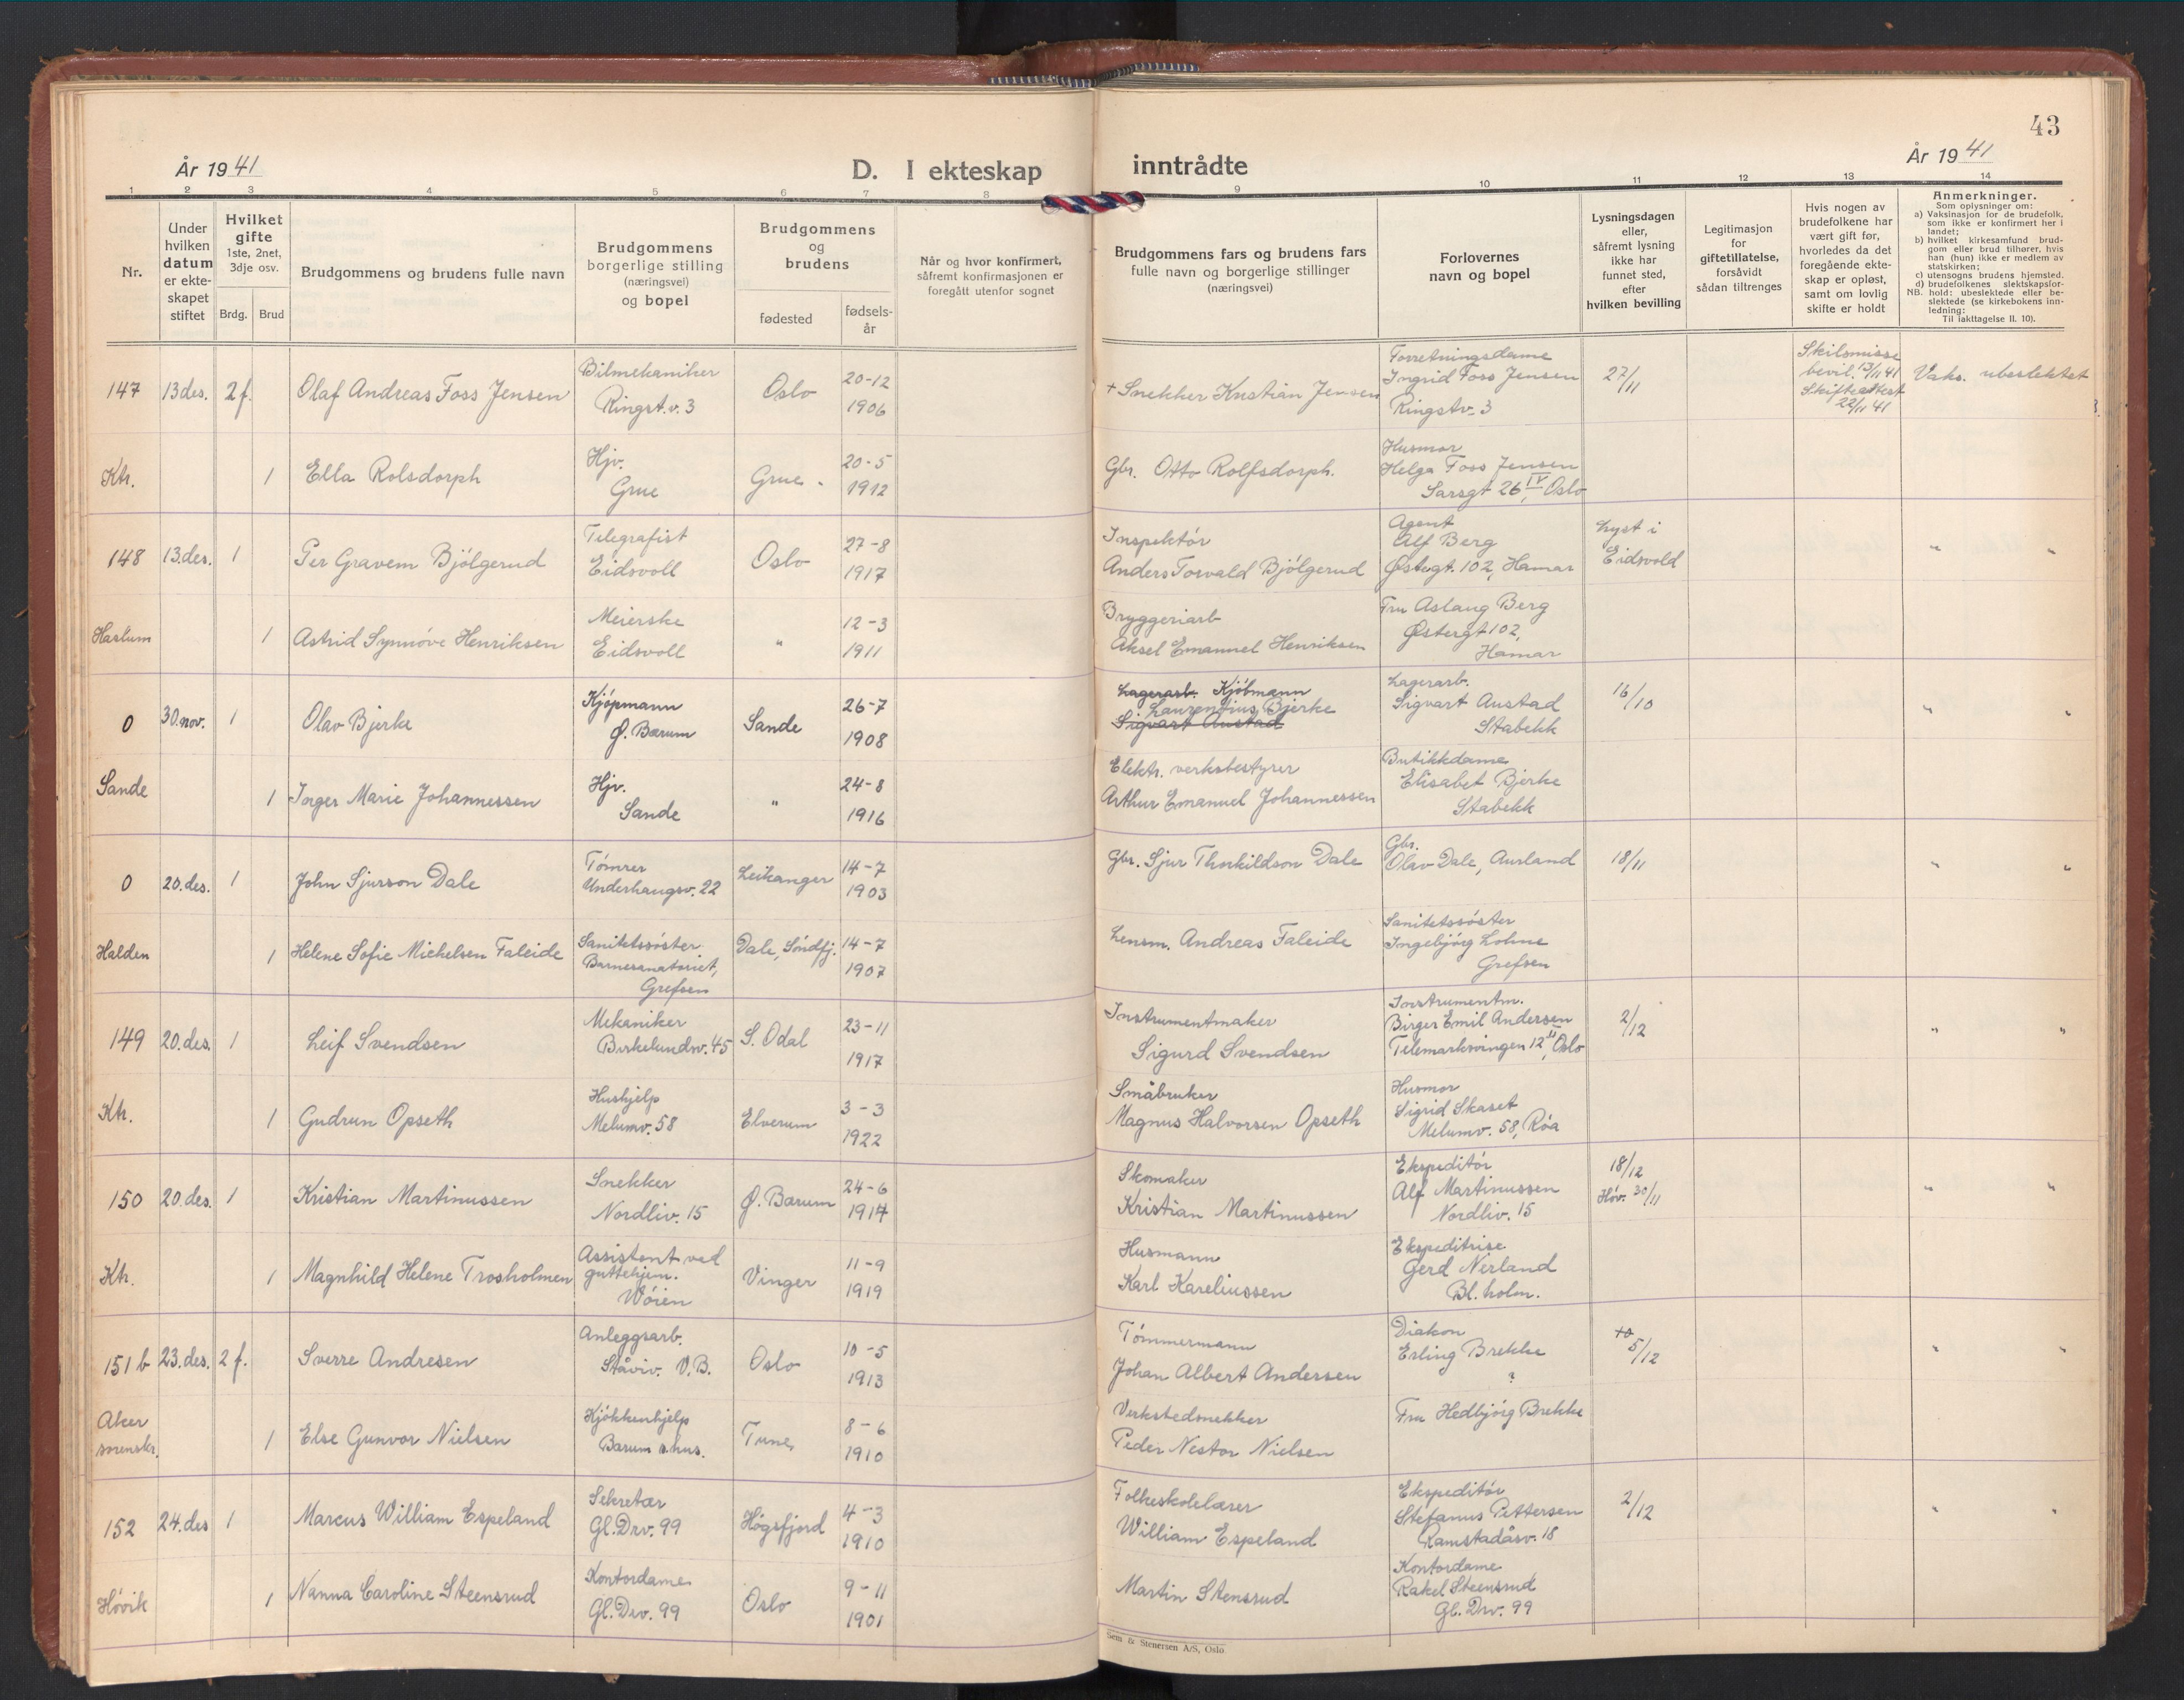 43
År 1941
D. I ekteskap inntrådte
År 1941
1 2 3 4 5 6 7 8 9 10 11 12 13 14
Nr.
Under
hvilken
datum
er ekte-
skapet
stiftet
Hvilket
gifte
1ste, 2net,
3dje osv.
Brdg. Brud
Brudgommens og brudens fulle navn
Brudgommens
borgerlige stilling
(næringsvei)
og bopel
Brudgommens
og
brudens
fødested
fødsels-
år
Når og hvor konfirmert,
såfremt konfirmasjonen er
foregått utenfor sognet
Brudgommens fars og brudens fars
fulle navn og borgerlige stillinger
(næringsvei)
Forlovernes
navn og bopel
Lysningsdagen
eller,
såfremt lysning
ikke har
funnet sted,
efter
hvilken bevilling
Legitimasjon
for
giftetillatelse,
forsåvidt
sådan tiltrenges
Hvis nogen av
brudefolkene har
vært gift før,
hvorledes da det
foregående ekte-
skap er opløst,
samt om lovlig
skifte er holdt
Anmerkninger.
Som oplysninger om:
a) Vaksinasjon for de brudefolk,
som ikke er konfirmert her i
landet;
b) hvilket kirkesamfund brud-
gom eller brud tilhører, hvis
han (hun) ikke er medlem av
statskirken;
c) utensogns brudens hjemsted.
d) brudefolkenes slektskapsfor-
NB. hold: ubeslektede eller be-
slektede (se kirkebokens inn-
ledning:
Til iakttagelse II. 10).
147 13 des. 2 f. Olaf Andreas Foss Jensen
Bilmekaniker
Ringst.v. 3
Oslo
20-12
1906
+ Snekker Kristian Jensen
Forretningsdame
Ingrid Foss Jensen
Ringstv. 3
27/11
Skilsmisse
bevil. 13/11 41
Skifteattest
22/11 41
Vaks. ubeslektet
Kh. 1 Ella Rolsdorph
Hjv.
Grue
Grue
20-5
1912
Gbr. Otto Rolfsdorph.
Husmor
Helga Foss Jensen
Sarsgt 26 IV, Oslo
148 13.des. 1 Per Gravem Bjölgerud
Telegrafist
Eidsvoll
Oslo
27-8
1917
Inspektör
Anders Torvald Bjölgerud
Agent
Alf Berg
Østergt. 102, Hamar
Lyst i
Eidsvold
" "
Haslum 1 Astrid Synnöve Henriksen
Meierske
Eidsvoll
"
12-3
1911
Bryggeriarb
Aksel Emanuel Henriksen
Fru Aslaug Berg
Østergt 102,
Hamar
0 30.nov. 1 Olav Bjerke
Kjöpmann
Ø. Bærum
Sande
26-7
1908
Lagerarb. Kjöbmann
Laurendius Bjerke
Sigvart Austad
Lagerarb.
Sigvart Austad
Stabekk
16/10
" "
Sande 1 Inger Marie Johannessen
Hjv.
Sande
"
24-8
1916
Elektr. verksbestyrer
Arthur Emanuel Johannessen
Butikkdame
Elisabet Bjerke
Stabekk
0 20.des. 1 John Sjurson Dale
Tömrer
Underhaugsv. 22
Leikanger
14-7
1903
Gbr. Sjur Thorkildson Dale
Gbr.
Olav Dale, Aurland
18/11
" "
Halden 1 Helene Sofie Michelsen Faleide
Sanitetssöster
Barnesanatoriet,
Grefsen
Dale, Söndfj.
14-7
1907
Lensm. Andreas Faleide
Sanitetssöster
Ingebjörg Lohne
Grefsen
149 20.des. 1 Leif Svendsen
Mekaniker
Birkelundsv. 45
S. Odal
23-11
1917
Instrumentmaker
Sigurd Svendsen
Instrumentm.
Birger Emil Andersen
Telemarksvingen 12 II, Oslo
2/12
" "
Kh. 1 Gudrun Opseth
Hushjelp
Melumv. 58
Elverum
3-3
1922
Småbruker
Magnus Halvorsen Opseth
Husmor
Sigrid Skaset
Melumv. 58, Röa
150 20.des. 1 Kristian Martinussen
Snekker
Nordliv. 15
Ø. Bærum
24-6
1914
Skomaker
Kristian Martinussen
Ekspeditör
Alf Martinussen
Nordliv. 15
18/12
Höv. 30/11
" "
Kh. 1 Magnhild Helene Trosholmen
Assistent ved
guttehjem.
Wöien
Vinger
11-9
1919
Husmann
Karl Kareliussen
Ekspeditrise
Gerd Nerland
Bl. holm.
151 b 23.des. 2 f. Sverre Andresen
Anleggsarb.
Ståviv. V.B.
Oslo
10-5
1913
Tömmermann
Johan Albert Andersen
Diakon
Erling Brekke
?
5/12
" "
Aker
sorenskr. 1 Else Gunvor Nielsen
Kjökkenhjelp
Bærum s.hus.
Tune
8-6
1910
Verkstedsnekker
Peder Nestor Nielsen
Fru Hedbjörg Brekke
152 24.des 1 Marcus William Espeland
Sekretær
Gl. Drv. 99
Högsfjord
4-3
1910
Folkeskolelærer
William Espeland
Ekspeditör
Stefanus Pettersen
Ramstadåsv. 18
2/12
" "
Hövik 1 Nanna Caroline Steensrud
Kontordame
Gl. Drv. 99
Oslo
9-11
1901
Martin Stensrud
Kontordame
Rakel Steensrud
Gl. Drv. 99
Sem & Stenersen A/S, Oslo